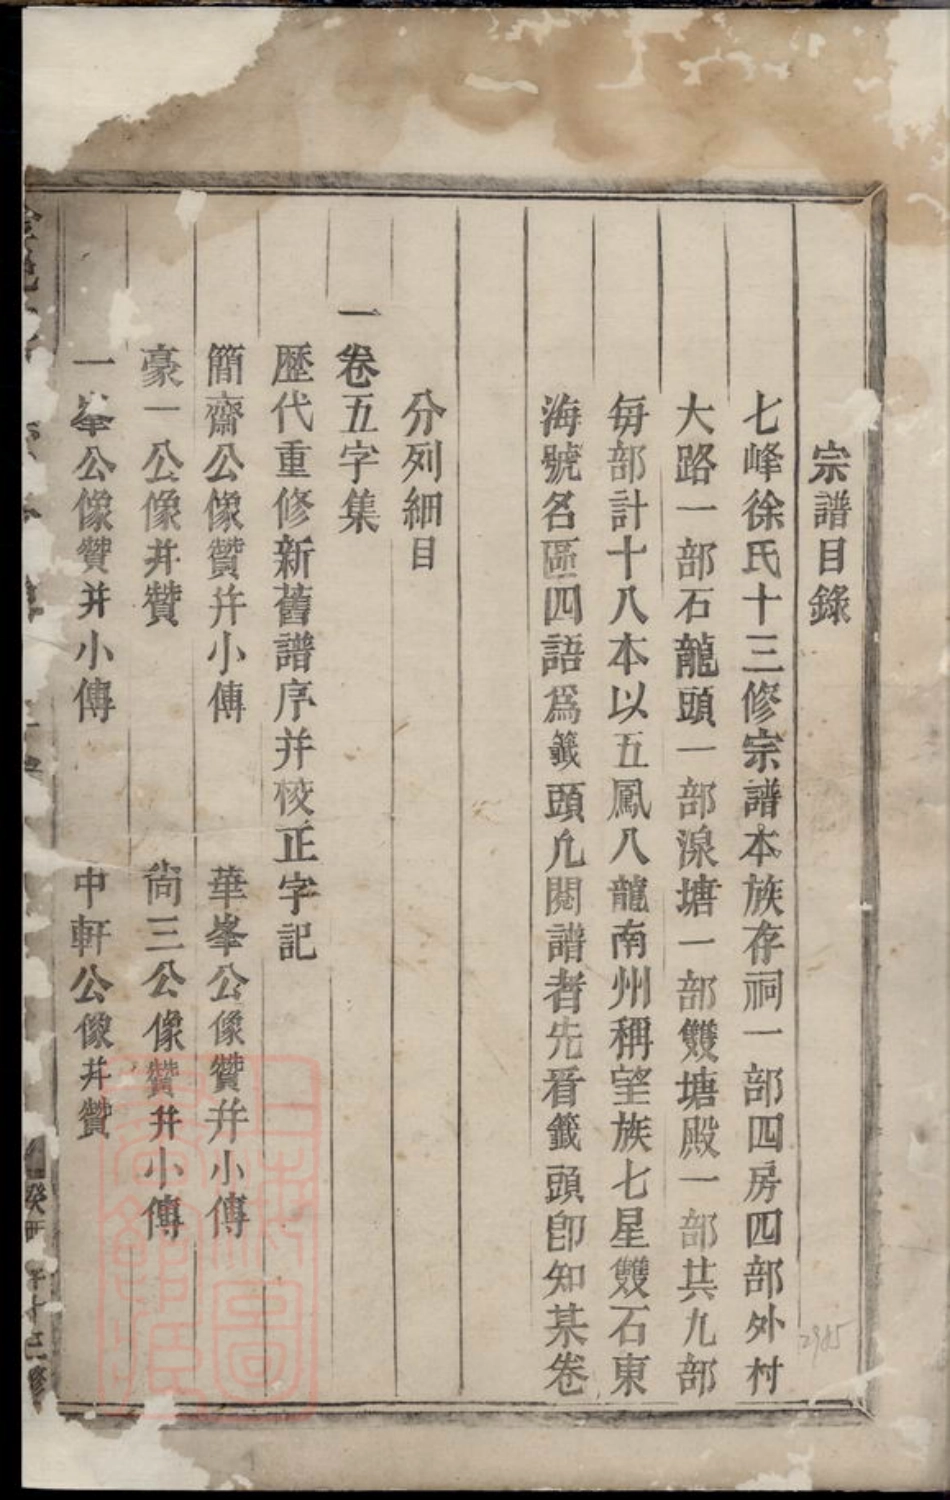 宗譜目錄
七峰徐氏十三修宗譜本族存祠一部四房四部外村
大路一部石龍頭一部湶塘一部雙塘殿一部共九部
每部計十八本以五鳳八龍南州稱望族七星雙石東
海號名區四語爲籤頭凢閱譜者先看籤頭卽知某卷
分列細目
一卷五字集
歷代重修新舊譜序并校正字記
簡齋公像贊并小傳 華峯公像贊并小傳
豪一公像并贊 尙三公像贊并小傳
一峯公像贊并小傳 中軒公像并贊
2985